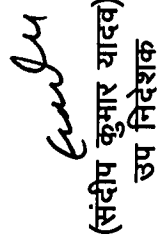 (संदीप कुमार यादव)
उप निदेशक